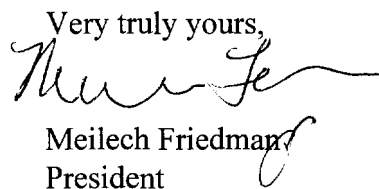 Very truly yours,
Meilech Friedman
President